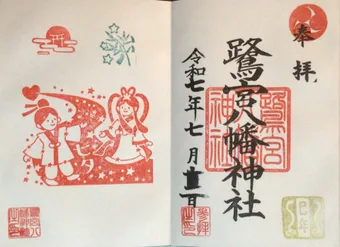 奉拝
鷺宮八幡神社
令和七年七月
鷺宮
神社
巳年